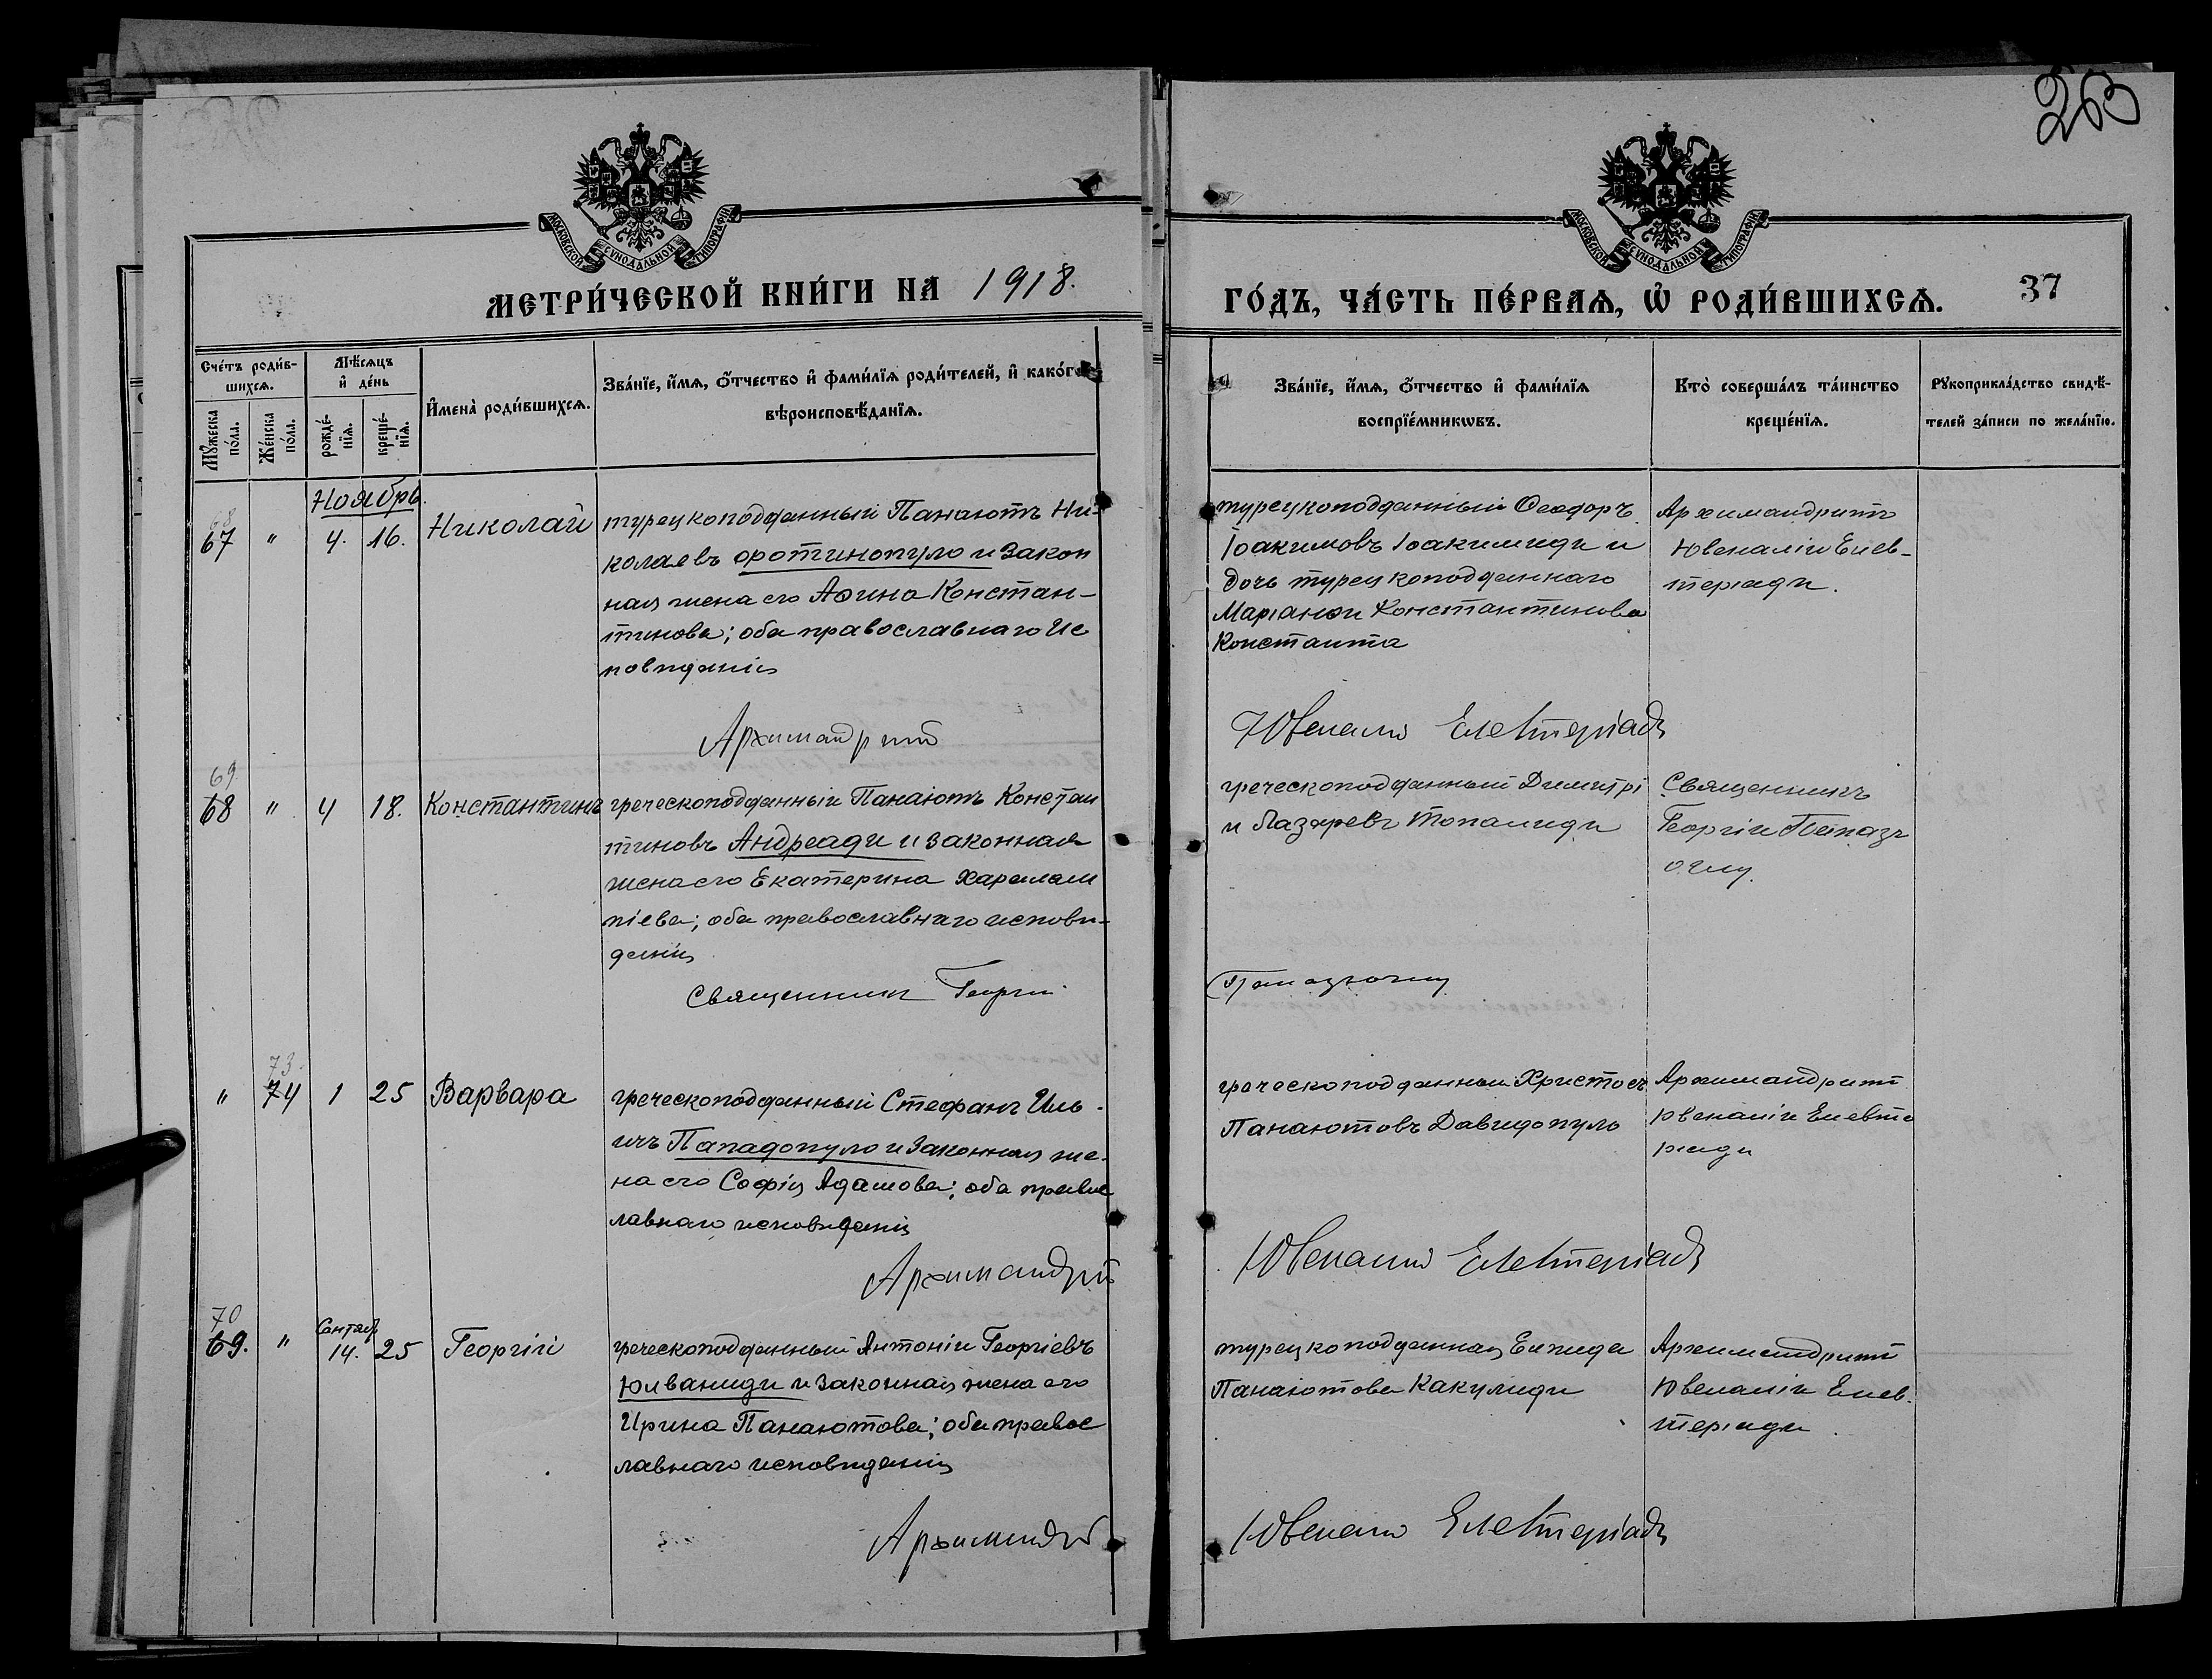 263
МОСКОВСКОЙ СУНОДАЛЬНОЙ ТИПОГРАФІИ
МОСКОВСКОЙ СУНОДАЛЬНОЙ ТИПОГРАФІИ
МЕТРИ́ЧЕСКОЙ КНИ́ГИ НА 1918.
ГО́ДЪ, ЧА́СТЬ ПЕ́РВАѦ, Ѿ РОДИ́ВШИХСѦ. 37
Сче́тъ роди́в-
шихсѧ.
Мꙋ́жеска
по́ла.
Же́нска
по́ла.
Мѣ́сѧцъ
и҆ де́нь
рожде́-
нїѧ.
креще́-
нїѧ.
И҆мена̀ роди́вшихсѧ.
Зва́нїе, и҆́мѧ, ѻ҆́тчество и҆ фами́лїѧ роди́телей, и҆ како́гѡ
вѣроисповѣ́данїѧ.
Зва́нїе, и҆́мѧ, ѻ҆́тчество и҆ фами́лїѧ
воспрїе́мникѡвъ.
Кто̀ соверша́лъ та́инство
креще́нїѧ.
Рꙋкоприкла́дство свидѣ́-
телей за́писи по жела́нїю.
Ноябрь.
68
67 " 4. 16. Николай
турецкоподданный Панаютъ Ни-
колаевъ Фотинопуло и закон
ная жена его Афина Констан-
тинова; оба православнаго ис
поведанія
турецкоподданный Феодоръ
Іоакимовъ Іоакимиди и
дочь турецкоподданнаго
Маріанфи Константинова
Константа
Архимандритъ
Ювеналій Елев-
теріади.
Архимандритъ
Ювеналій Елевтеріади
69.
68 " 4 18. Константинъ
греческоподданный Панаютъ Констан
тиновъ Андреади и законная
жена его Екатерина Харалам
піева; оба православнаго испове-
данія
греческоподданный Димитрі
й Лазаревъ Топалиди
Священникъ
Георгій
оглу.
Священникъ Георгій
73.
" 74 1 25 Варвара
греческоподданный Стефанъ Иль-
ичъ Пападопуло и законная же-
на его Софія Адамова; оба правос
лавнаго исповеданія
греческоподданный Христосъ
Панаютовъ Давидопуло
Архимандритъ
Ювеналій Елевте
ріади
Архимандритъ
Ювеналій Елевтеріади
70
69. " Сентяб. 14. 25 Георгій
греческоподданный Антоній Георгіевъ
Юлваниди и законная жена его
Ирина Панаютова; оба правос
лавнаго исповеданія
турецкоподданная Елпида
Панаютова Какулиди
Архимандритъ
Ювеналій Елев-
теріади.
Архимандритъ
Ювеналій Елевтеріади